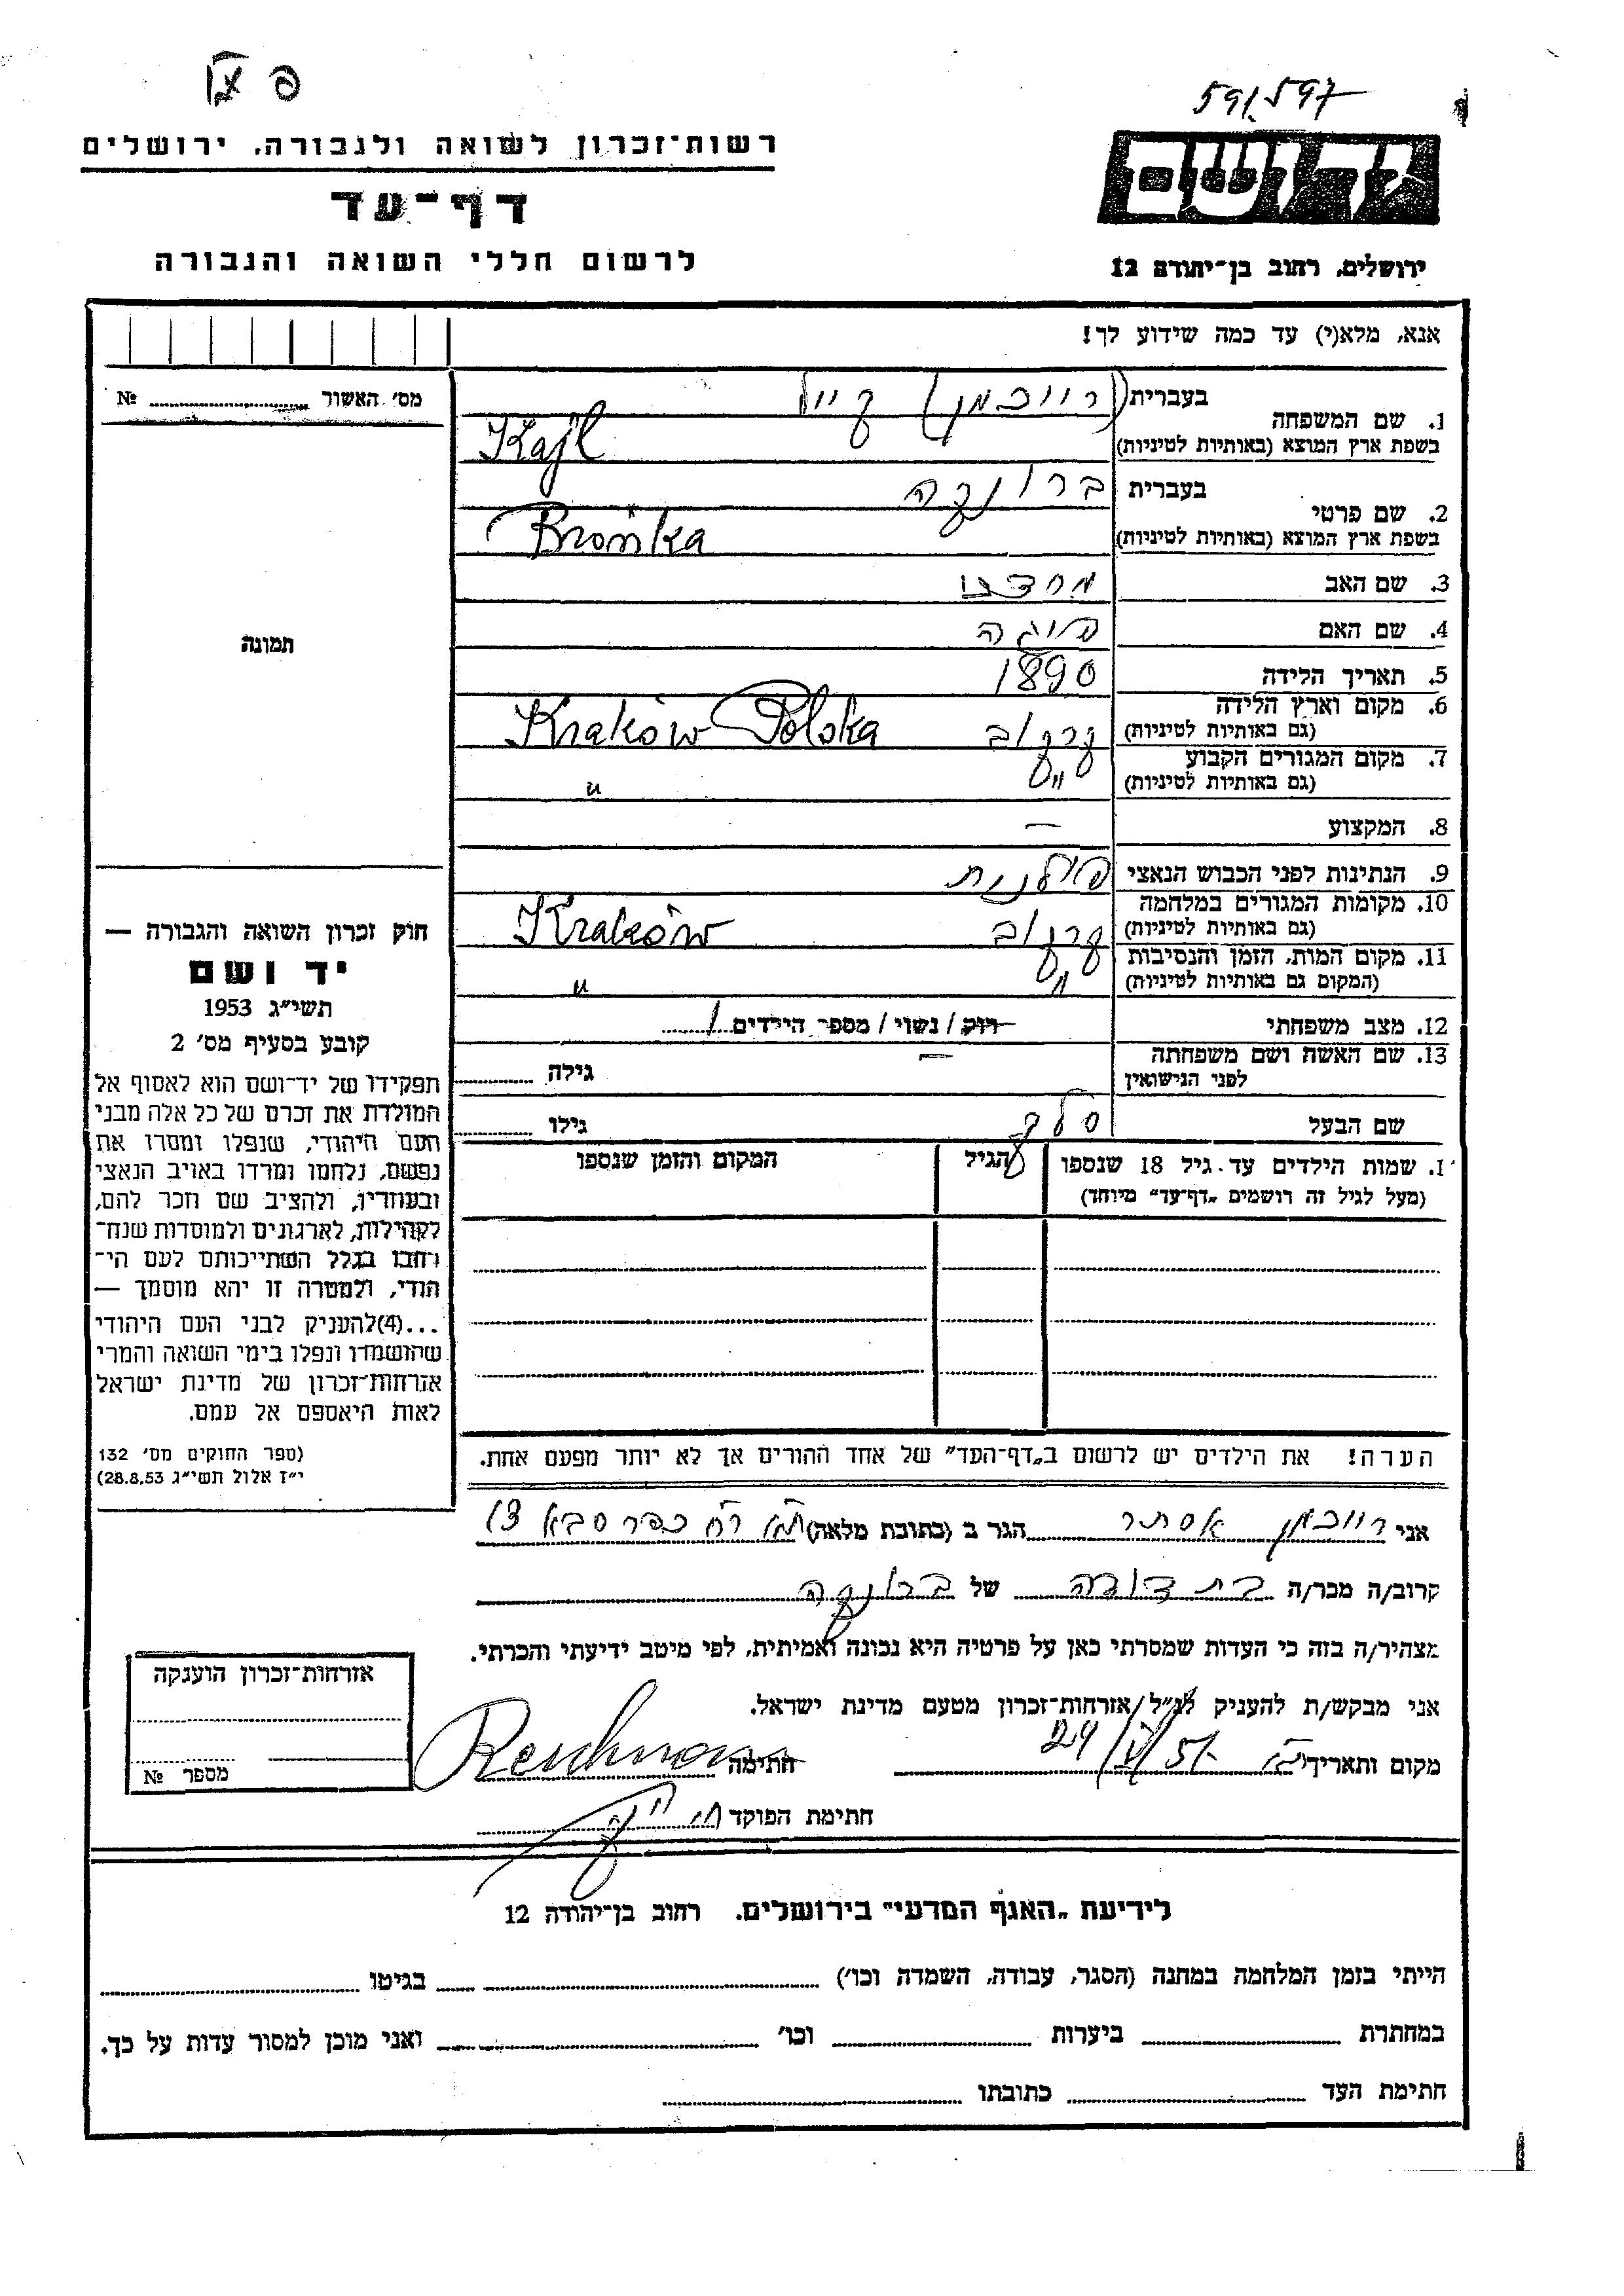 591597
רשות־זכרון לשואה ולגבורה. ירושלים
דף־עד
לרשום חללי השואה והגבורה
יד ושם
ירושלים, רחוב בן־יהודה 12
אנא, מלא(י) עד כמה שידוע לך!
מס׳ האשור № 
תמונה
1. שם המשפחה
בעברית (רייכמן) קייל
בשפת ארץ המוצא (באותיות לטיניות) Kajl
2. שם פרטי
בעברית ברונקה
בשפת ארץ המוצא (באותיות לטיניות) Brońka
3. שם האב מרדכי
4. שם האם
5. תאריך הלידה 1890
6. מקום וארץ הלידה (גם באותיות לטיניות) קרקוב Kraków Polska
7. מקום המגורים הקבוע (גם באותיות לטיניות) " "
8. המקצוע —
9. הנתינות לפני הכבוש הנאצי פולנית
10. מקומות המגורים במלחמה (גם באותיות לטיניות) קרקוב Kraków
11. מקום המות, הזמן והנסיבות (המקום גם באותיות לטיניות) " "
12. מצב משפחתי רוק / נשוי / מספר הילדים 1
13. שם האשה ושם משפחתה לפני הנישואין — גילה
שם הבעל גילו
1. שמות הילדים עד גיל 18 שנספו
(מעל לגיל זה רושמים „דף־עד״ מיוחד)
הגיל
המקום והזמן שנספו
חוק זכרון השואה והגבורה —
יד ושם
תשי״ג 1953
קובע בסעיף מס׳ 2
תפקידו של יד־ושם הוא לאסוף אל
המולדת את זכרם של כל אלה מבני
העם היהודי, שנפלו ומסרו את
נפשם, נלחמו ומרדו באויב הנאצי
ובעוזריו, ולהציב שם וזכר להם,
לקהילות, לארגונים ולמוסדות שנח־
רבו בגלל השתייכותם לעם הי־
הודי, ולמטרה זו יהא מוסמך —
...(4) להעניק לבני העם היהודי
שהושמדו ונפלו בימי השואה והמרי
אזרחות־זכרון של מדינת ישראל
לאות היאספם אל עמם.
(ספר החוקים מס׳ 132
י״ז אלול תשי״ג 28.8.53)
הערה! את הילדים יש לרשום ב„דף־העד״ של אחד ההורים אך לא יותר מפעם אחת.
אני רייכמן אסתר הגר ב (כתובת מלאה) ת״א רח׳ כפר סבא 13
קרוב/ה מכר/ה בת דודה של ברונקה
מצהיר/ה בזה כי העדות שמסרתי כאן על פרטיה היא נכונה ואמיתית, לפי מיטב ידיעתי והכרתי.
אני מבקש/ת להעניק לנ״ל אזרחות־זכרון מטעם מדינת ישראל.
מקום ותאריך חתימה Reichman
חתימת הפוקד
אזרחות־זכרון הוענקה
מספר №
לידיעת „האגף המדעי״ בירושלים. רחוב בן־יהודה 12
הייתי בזמן המלחמה במחנה (הסגר, עבודה, השמדה וכו׳) בגיטו
במחתרת ביערות וכו׳ ואני מוכן למסור עדות על כך.
חתימת העד כתובתו